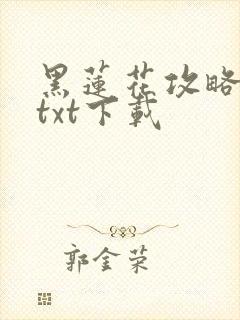 黑蓮花攻略
txt下載
郭金荣